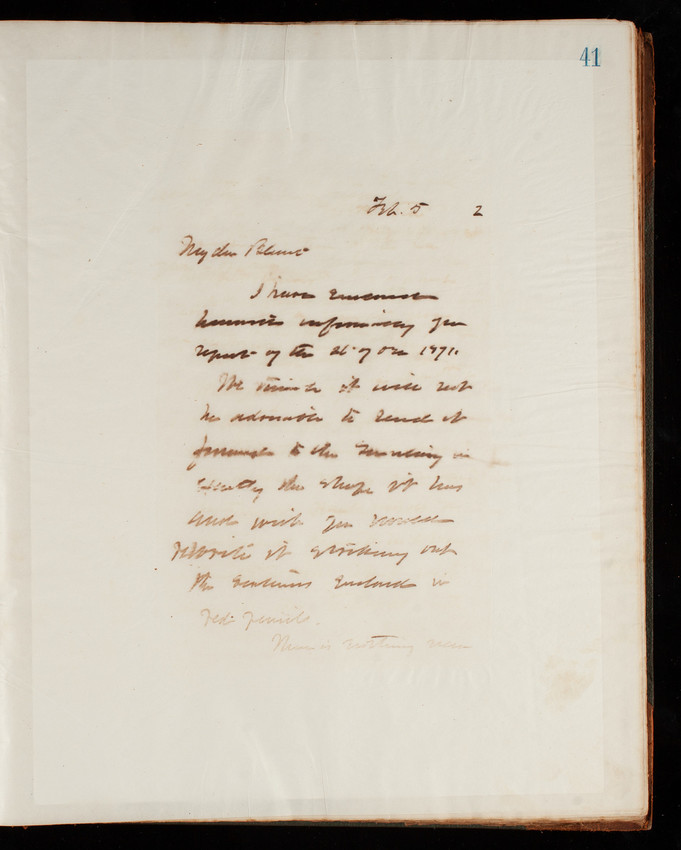 41
Feb. 5 2
My dear Blunt
I have enclosed
herewith informing you
report of the 21 of Dec 1871.
We think it will not
be advisable to send it
forward to the Secretary in
exactly the shape it has
and wish you would
rewrite it striking out
the sentences enclosed in
red pencil.
There is nothing new